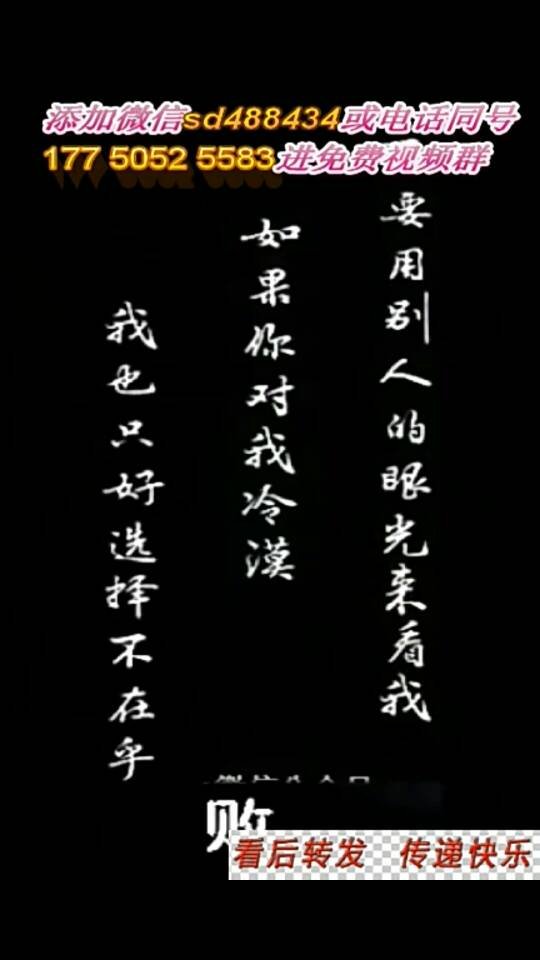 添加微信sd488434或电话同号
177 5052 5583进免费视频群
要用别人的眼光来看我
如果你对我冷漠
我也只好选择不在乎
微信公众号
败
看后转发 传递快乐